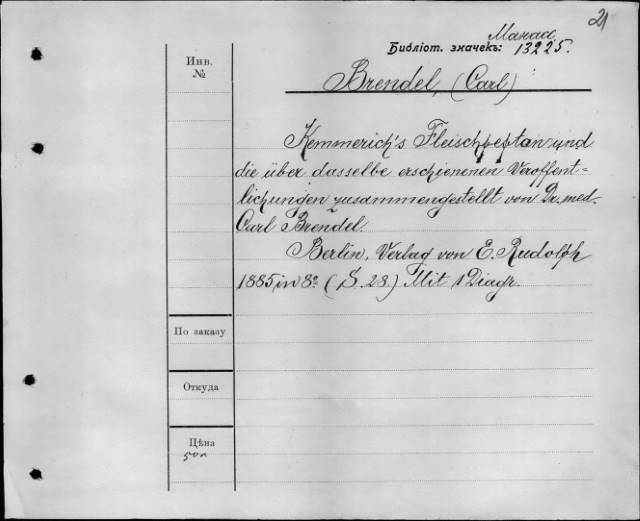 21
Манад
Библіот. значекъ: 13225.
Инв.
№
Brendel, (Carl)
Kemmerich's Fleischpepton und
die über dasselbe erschienenen Veroffent=
lichungen zusammengestellt von Dr. med.
Carl Brendel.
Berlin, Verlag von E. Rudolph
1885 in 8º (S. 28.) Mit 1 Diagr.
По заказу
Откуда
Цѣна